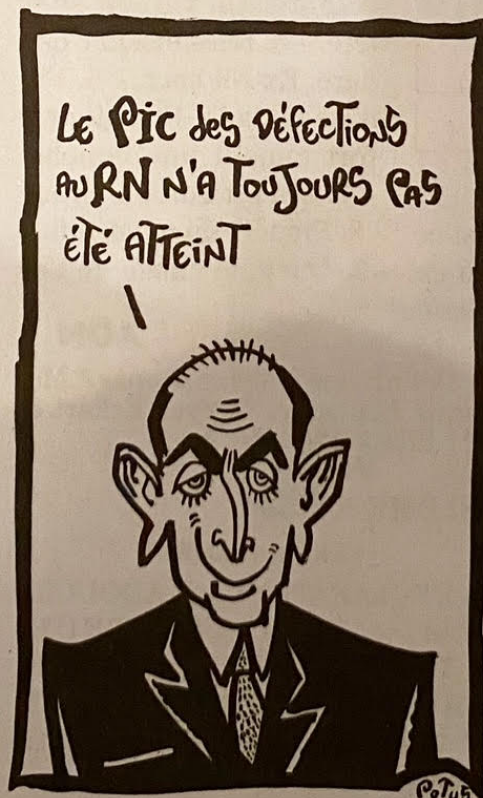 LE PIC des DÉFECTIONS
AU RN N'A TOUJOURS PAS
ÉTÉ ATTEINT
PoTUS